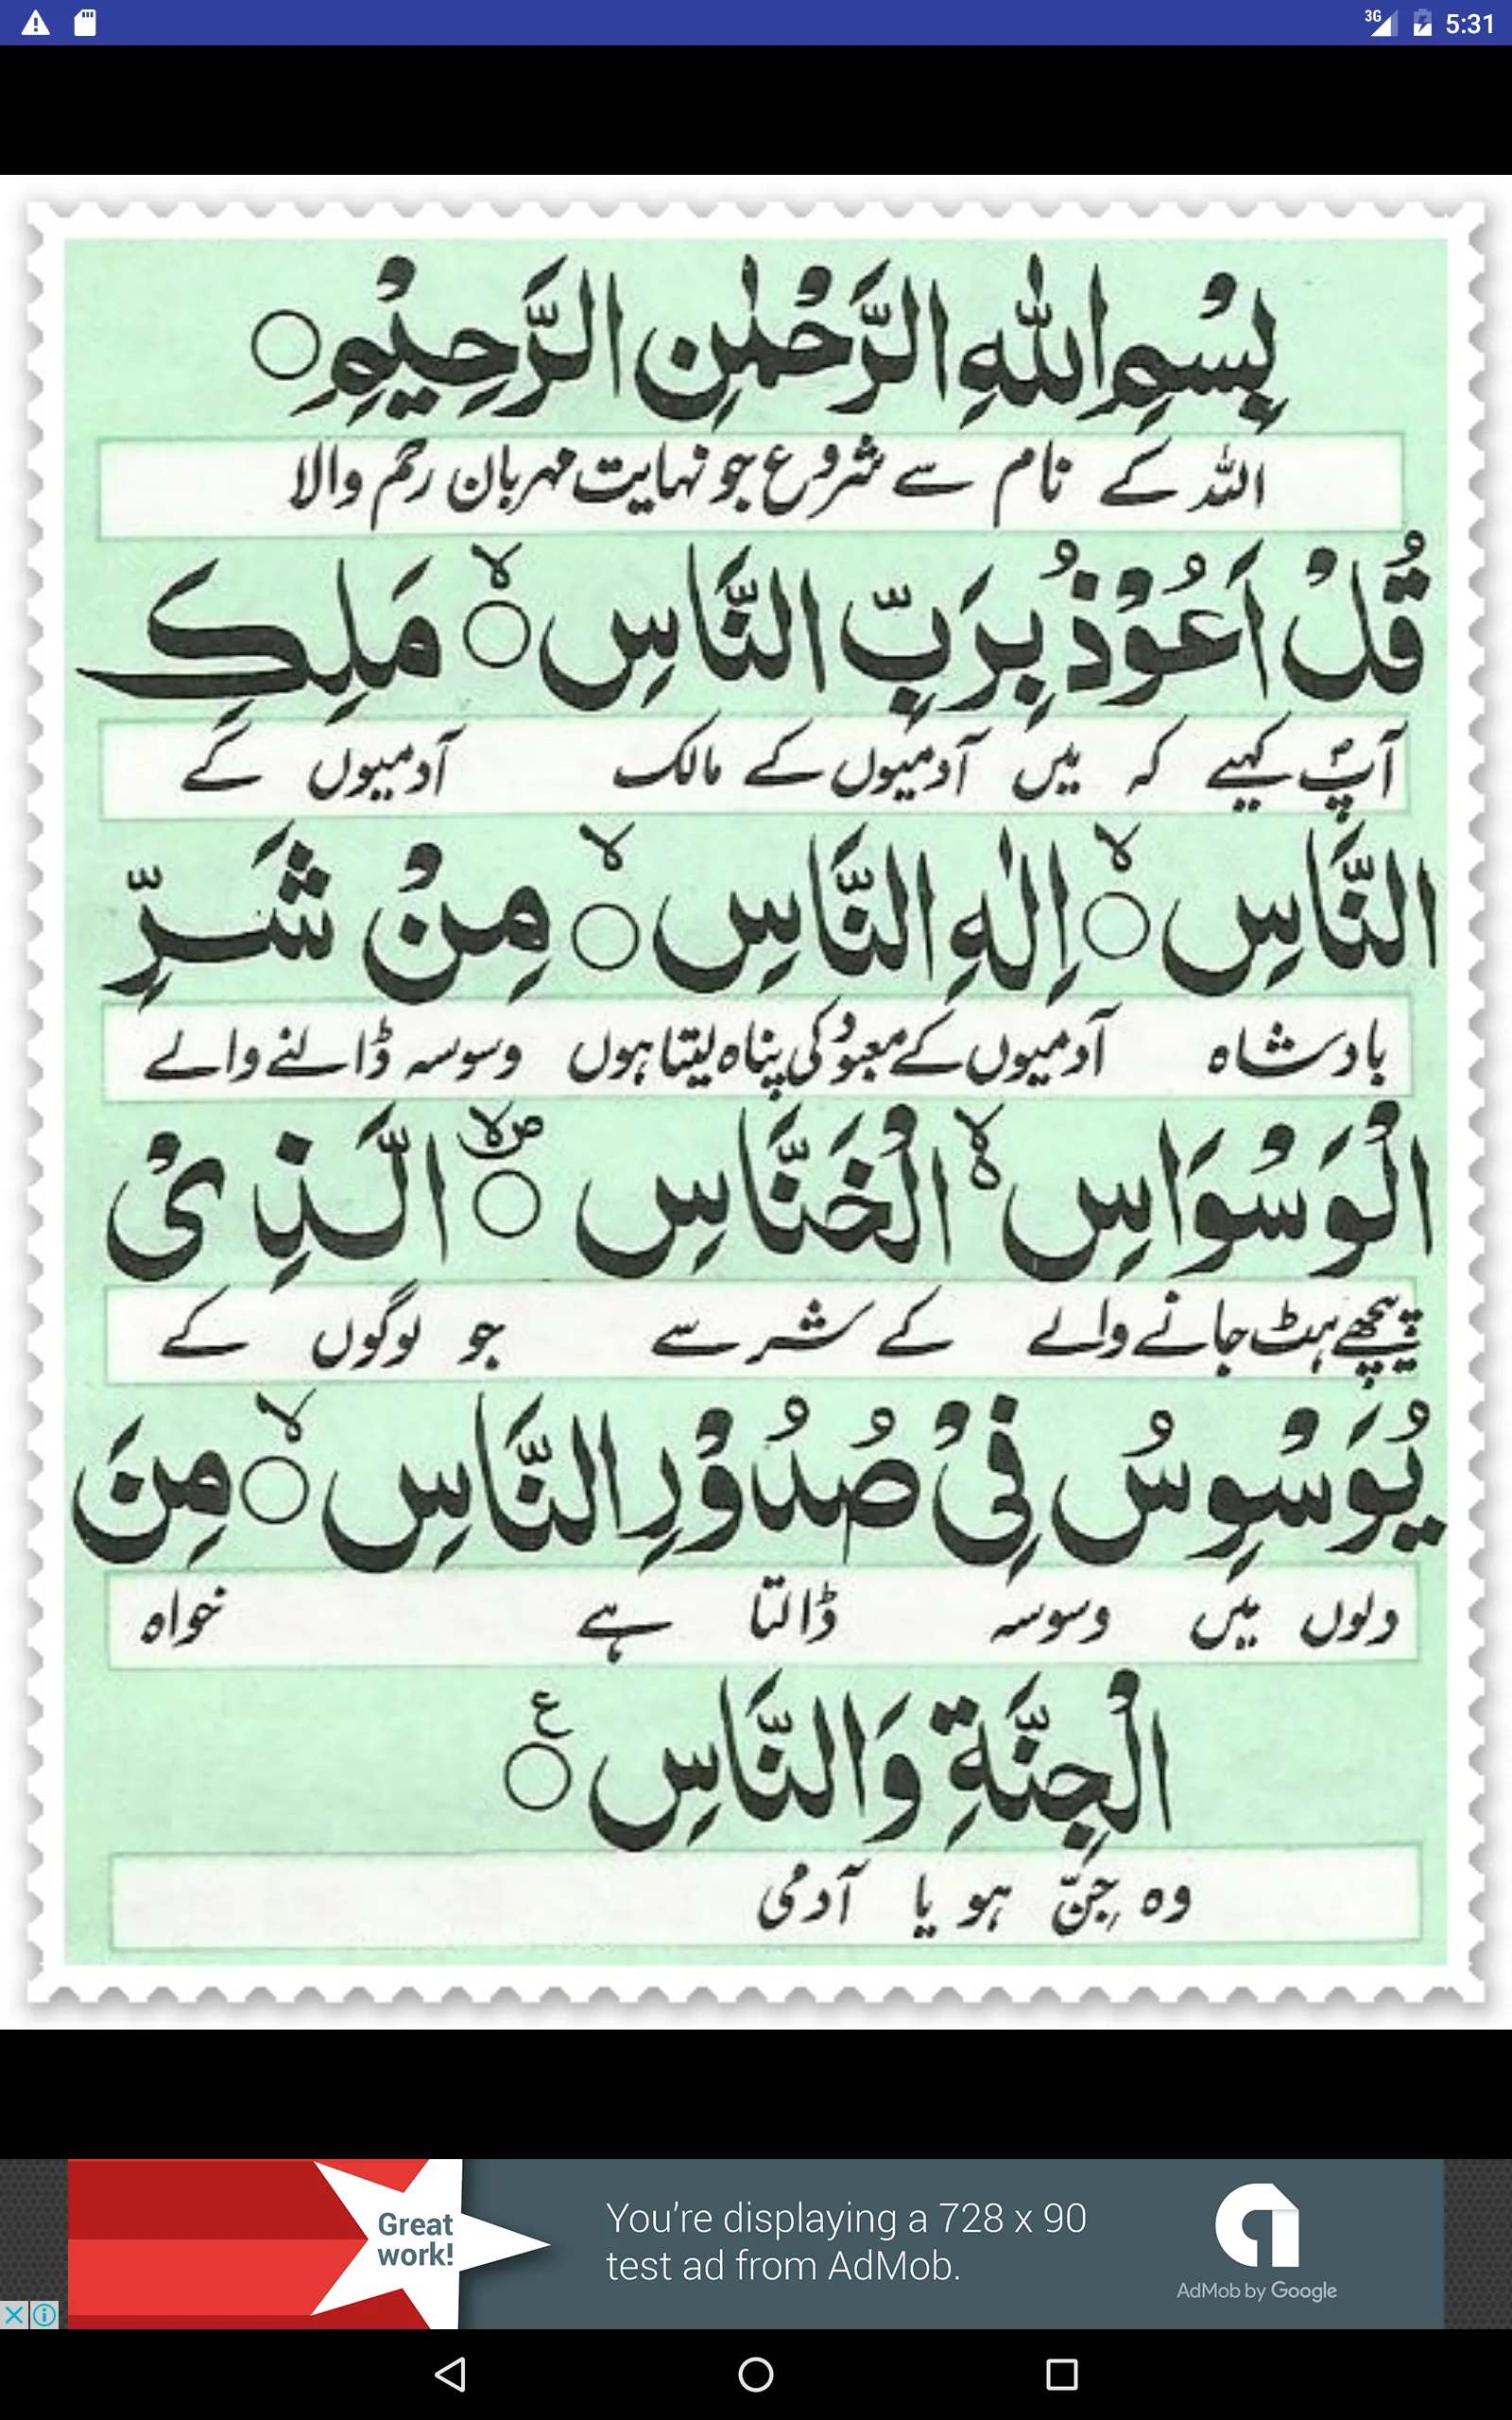 3G 5:31
بِسْمِ اللّٰهِ الرَّحْمٰنِ الرَّحِيْمِ ○
اللہ کے نام سے شروع جو نہایت مہربان رحم والا
قُلْ اَعُوْذُ بِرَبِّ النَّاسِ ○ۙ مَلِكِ
آپؐ کہیے کہ میں آدمیوں کے مالک آدمیوں کے
النَّاسِ ○ۙ اِلٰهِ النَّاسِ ○ۙ مِنْ شَرِّ
بادشاہ آدمیوں کے معبود کی پناہ لیتا ہوں وسوسہ ڈالنے والے
الْوَسْوَاسِ ۙ۬ الْخَنَّاسِ ○۪ۙ الَّذِىْ
پیچھے ہٹ جانے والے کے شر سے جو لوگوں کے
يُوَسْوِسُ فِىْ صُدُوْرِ النَّاسِ ○ۙ مِنَ
دلوں میں وسوسہ ڈالتا ہے خواہ
الْجِنَّةِ وَالنَّاسِ ○ ع
وہ جِنّ ہو یا آدمی
Great
work!
You're displaying a 728 x 90
test ad from AdMob.
AdMob by Google